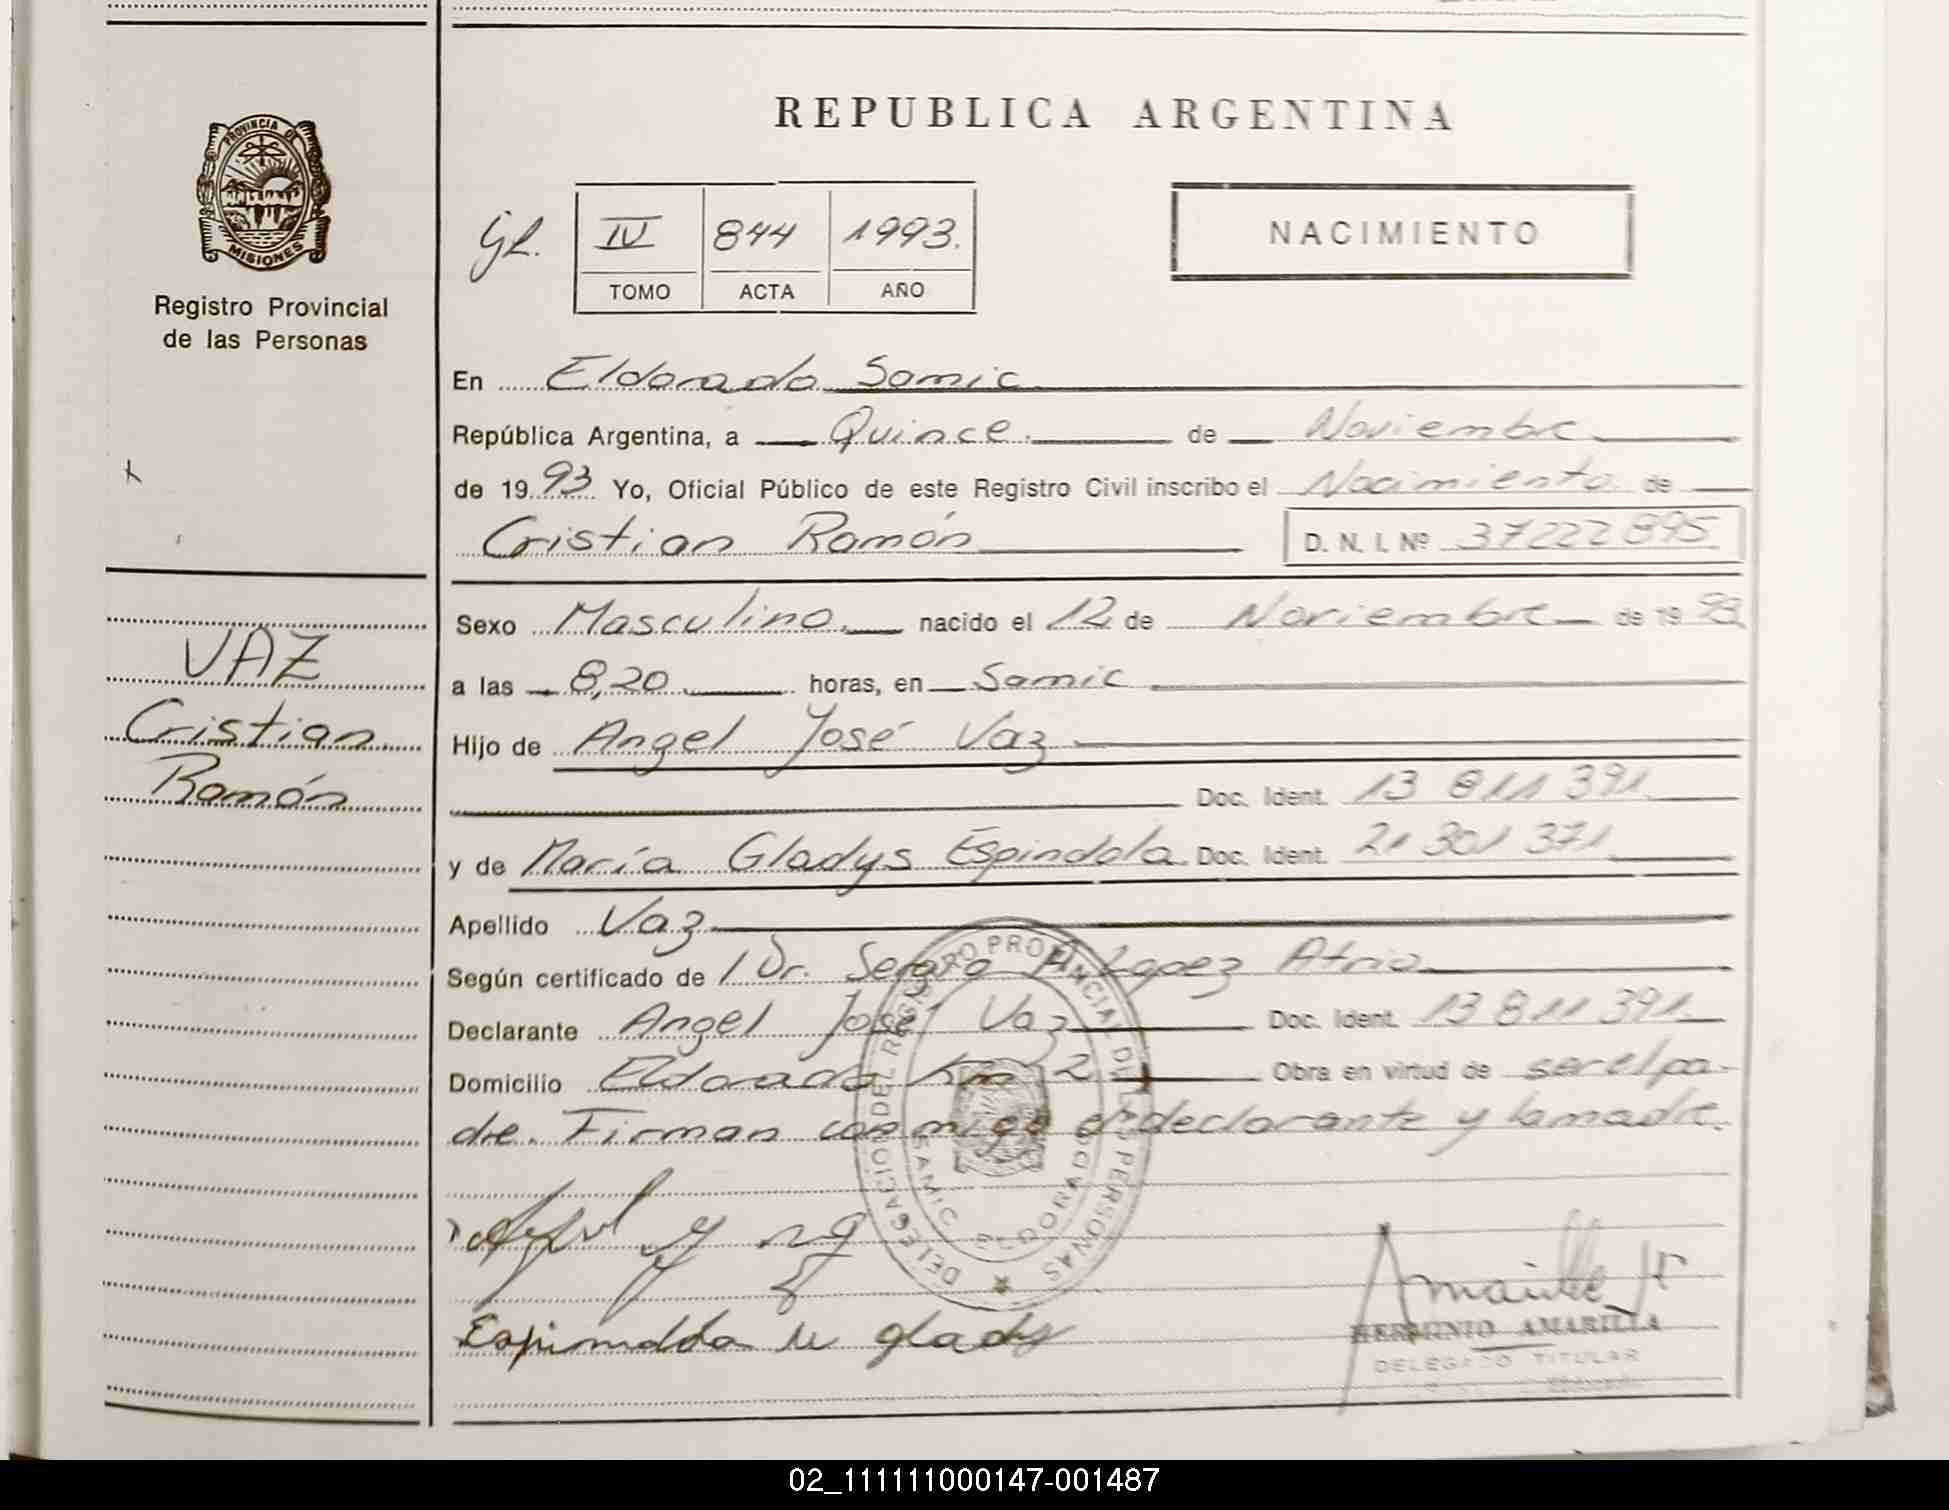 PROVINCIA DE
MISIONES
Registro Provincial
de las Personas
REPUBLICA ARGENTINA
IV 844 1993.
TOMO ACTA AÑO
NACIMIENTO
En Eldorado Samic
República Argentina, a Quince de Noviembre
de 1993 Yo, Oficial Público de este Registro Civil inscribo el Nacimiento de
Cristian Ramón D. N. I. Nº 37222895
VAZ
Cristian
Ramón
Sexo Masculino nacido el 12 de Noviembre de 1993
a las 8,20 horas, en Samic
Hijo de Angel José Vaz
Doc. Ident. 13 811 391
y de María Gladys Espindola Doc. Ident. 21 301 371
Apellido Vaz
Según certificado de Dr. Sergio A. Lopez Atrio
Declarante Angel José Vaz Doc. Ident. 13 811 391
Domicilio Eldorado Km 2 Obra en virtud de ser el pa-
dre. Firman conmigo el declarante y la madre.
DELEGACION DEL REGISTRO PROVINCIAL DE LAS PERSONAS
SAMIC ELDORADO
HERMINIO AMARILLA
DELEGADO TITULAR
02_111111000147-001487